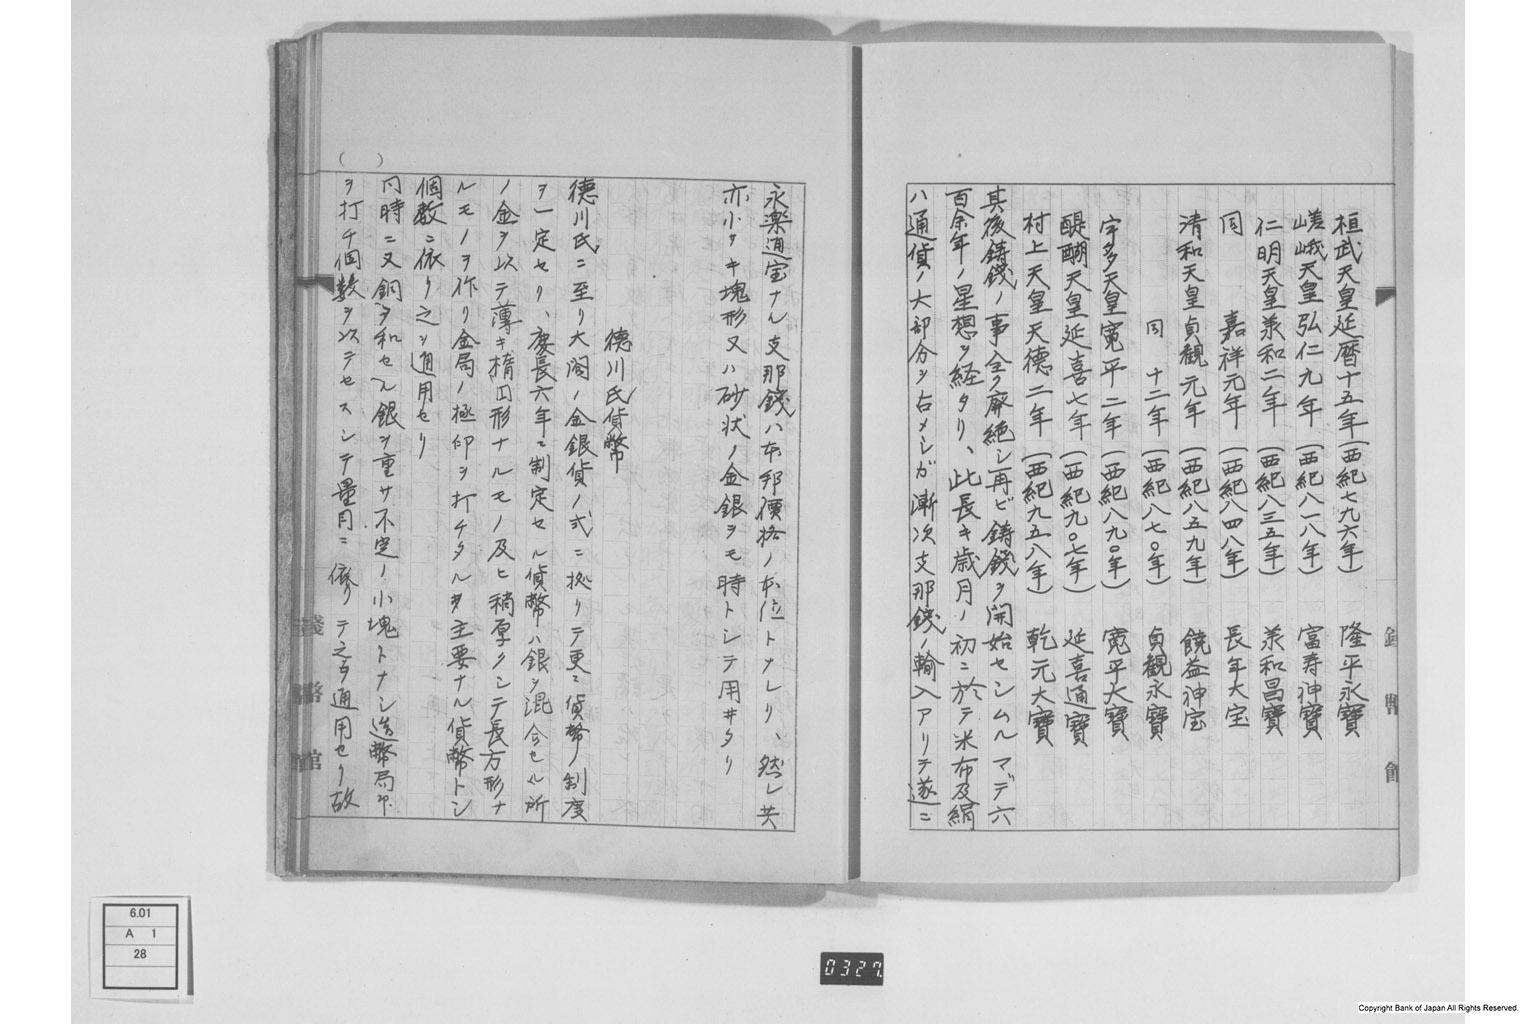 桓武天皇延暦十五年(西紀七九六年) 隆平永寶
嵯峨天皇弘仁九年(西紀八一八年) 富寿神寶
仁明天皇承和二年(西紀八三五年) 承和昌寶
同 嘉祥元年(西紀八四八年) 長年大宝
清和天皇貞観元年(西紀八五九年) 饒益神宝
同 十二年(西紀八七〇年) 貞観永寶
宇多天皇寛平二年(西紀八九〇年) 寛平大寶
醍醐天皇延喜七年(西紀九〇七年) 延喜通寶
村上天皇天徳二年(西紀九五八年) 乾元大寶
其後鋳錢ノ事全ク廃絶シ再ビ鋳錢ヲ開始セシムルマデ六
百余年ノ星想ヲ経タリ、此長キ歳月ノ初ニ於テ米布及絹
ハ通貨ノ大部分ヲ占メシガ漸次支那錢ノ輸入アリテ遂ニ
錢幣館
永楽通宝ナル支那錢ハ本邦價格ノ本位トナレリ、然レ共
亦小サキ塊形又ハ砂状ノ金銀ヲモ時トシテ用ヰタリ
德川氏貨幣
德川氏ニ至リ大閤ノ金銀貨ノ式ニ拠リテ更ニ貨幣ノ制度
ヲ一定セリ、慶長六年ニ制定セル貨幣ハ銀ヲ混合セル所
ノ金ヲ以テ薄キ楕円形ナルモノ及ヒ稍厚クシテ長方形ナ
ルモノヲ作リ金局ノ極印ヲ打チタルヲ主要ナル貨幣トシ
個数ニ依リ之ヲ通用セリ
同時ニ又銅ヲ和セル銀ヲ重サ不定ノ小塊トナシ造幣局印
ヲ打チ個数ヲ以テセスシテ量目ニ依リテ之ヲ通用セリ故
( )
錢幣館
6.01
A 1
28
0327
Copyright Bank of Japan All Rights Reserved.